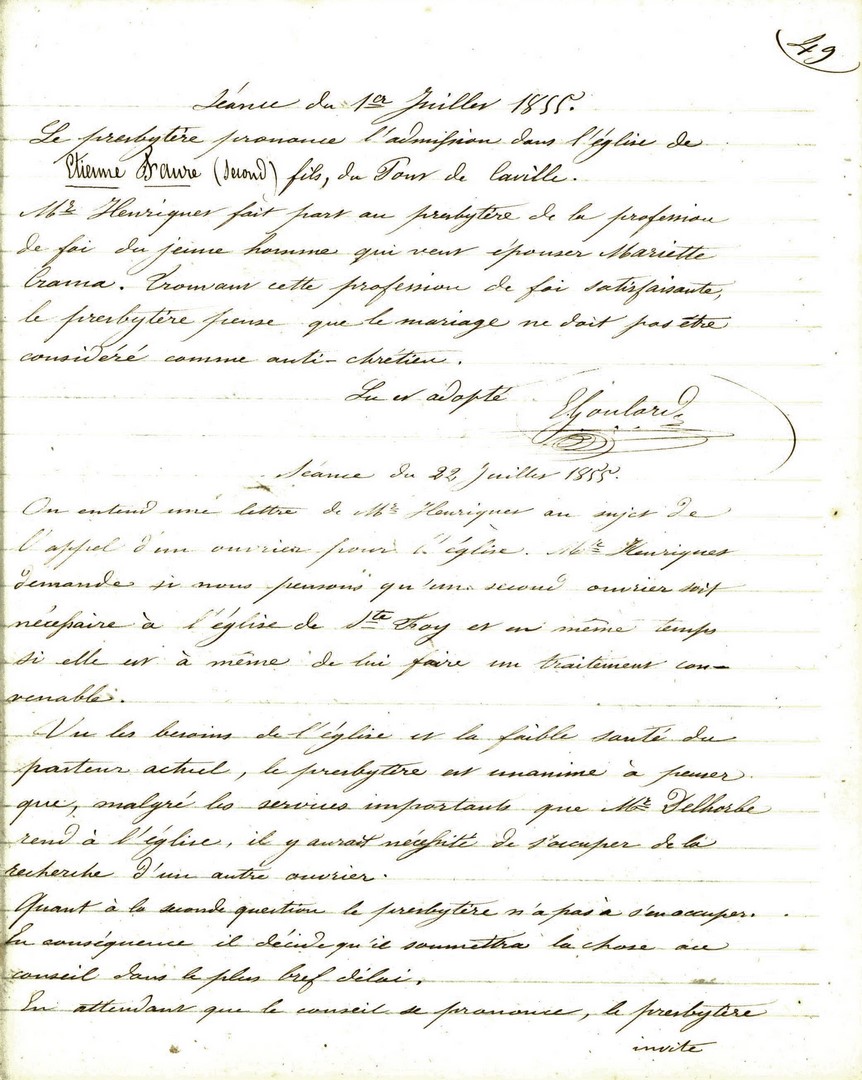 49
Séance du 1er Juillet 1855.
Le presbytère prononce l'admission dans l'église de
Etienne Faure (second) fils, du Tour de Caville.
Mr Henriquet fait part au presbytère de la profession
de foi du jeune homme qui veut épouser Mariette
Crama. Trouvant cette profession de foi satisfaisante,
le presbytère pense que le mariage ne doit pas être
considéré comme anti-chrétien.
Lu et adopté
EGoulard
Séance du 22 Juillet 1855.
On entend une lettre de Mr Henriquet au sujet de
l'appel d'un ouvrier pour l'église. Mr Henriquet
demande si nous pensons qu'un second ouvrier soit
nécessaire à l'église de Ste Foy et en même temps
si elle est à même de lui faire un traitement con-
venable.
Vu les besoins de l'église et la faible santé du
pasteur actuel, le presbytère est unanime à penser
que, malgré les services importants que Mr Delhorbe
rend à l'église, il y aurait nécessité de s'occuper de la
recherche d'un autre ouvrier.
Quant à la seconde question le presbytère n'a pas à s'en occuper.
En conséquence il décide qu'il soumettra la chose au
conseil dans le plus bref délai.
En attendant que le conseil se prononce, le presbytère
invite